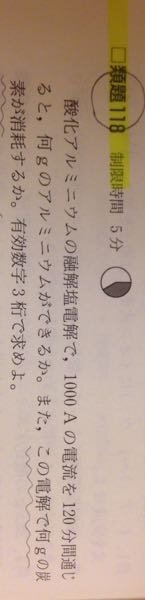 □類題118 制限時間 5分
酸化アルミニウムの融解塩電解で，1000 Aの電流を120分間通じ
ると，何gのアルミニウムができるか。また，この電解で何gの炭
素が消耗するか。有効数字3桁で求めよ。